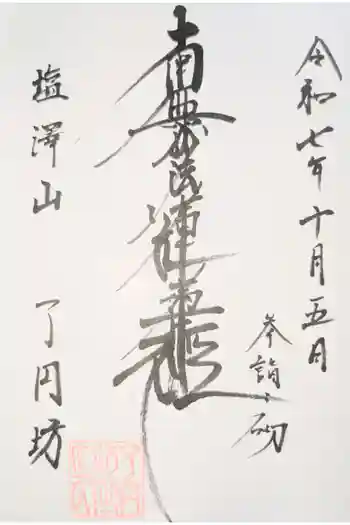 令和七年十月五日
参詣之砌
南無妙法蓮華経
塩澤山 了円坊